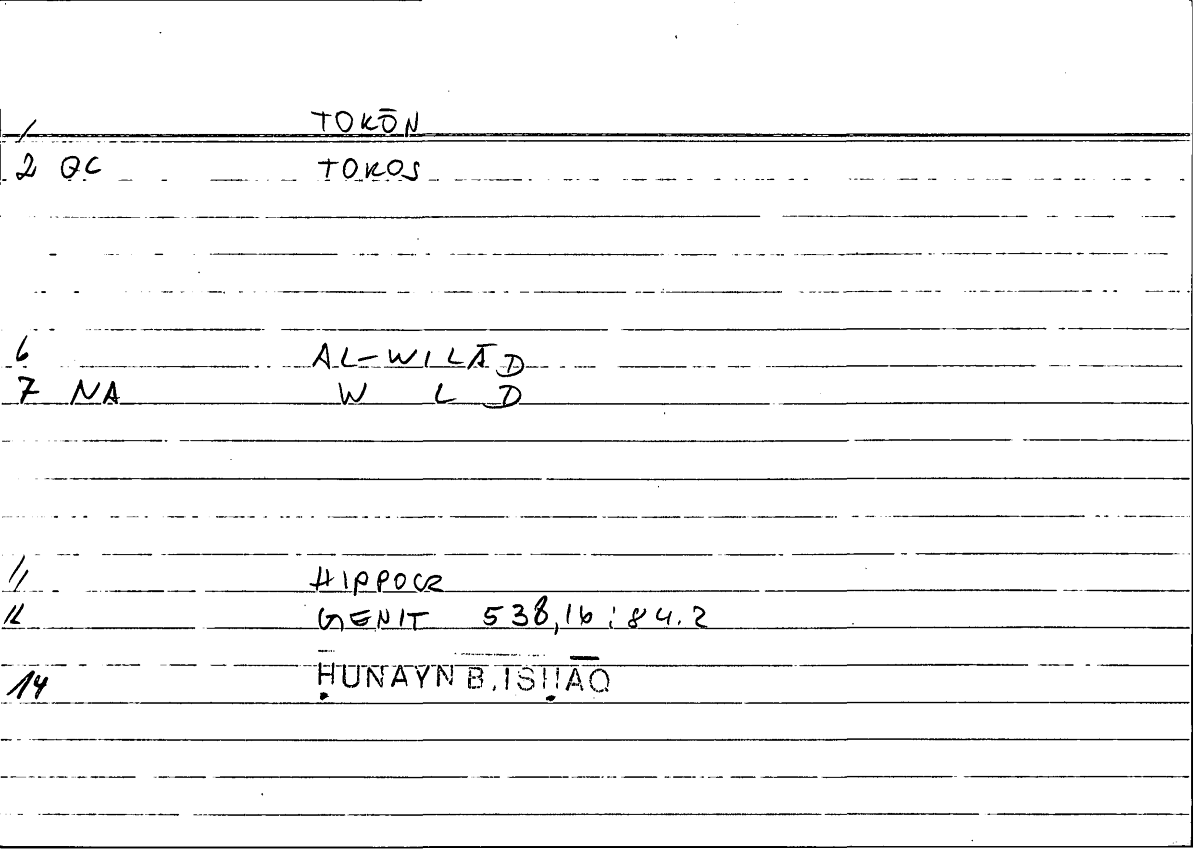 1 TOKŌN
2 QC TOKOS
6 AL-WILĀD
7 NA W L D
11 HIPPOCR
12 GENIT 538,16 : 84.2
14 ḤUNAYN B. ISḤĀQ